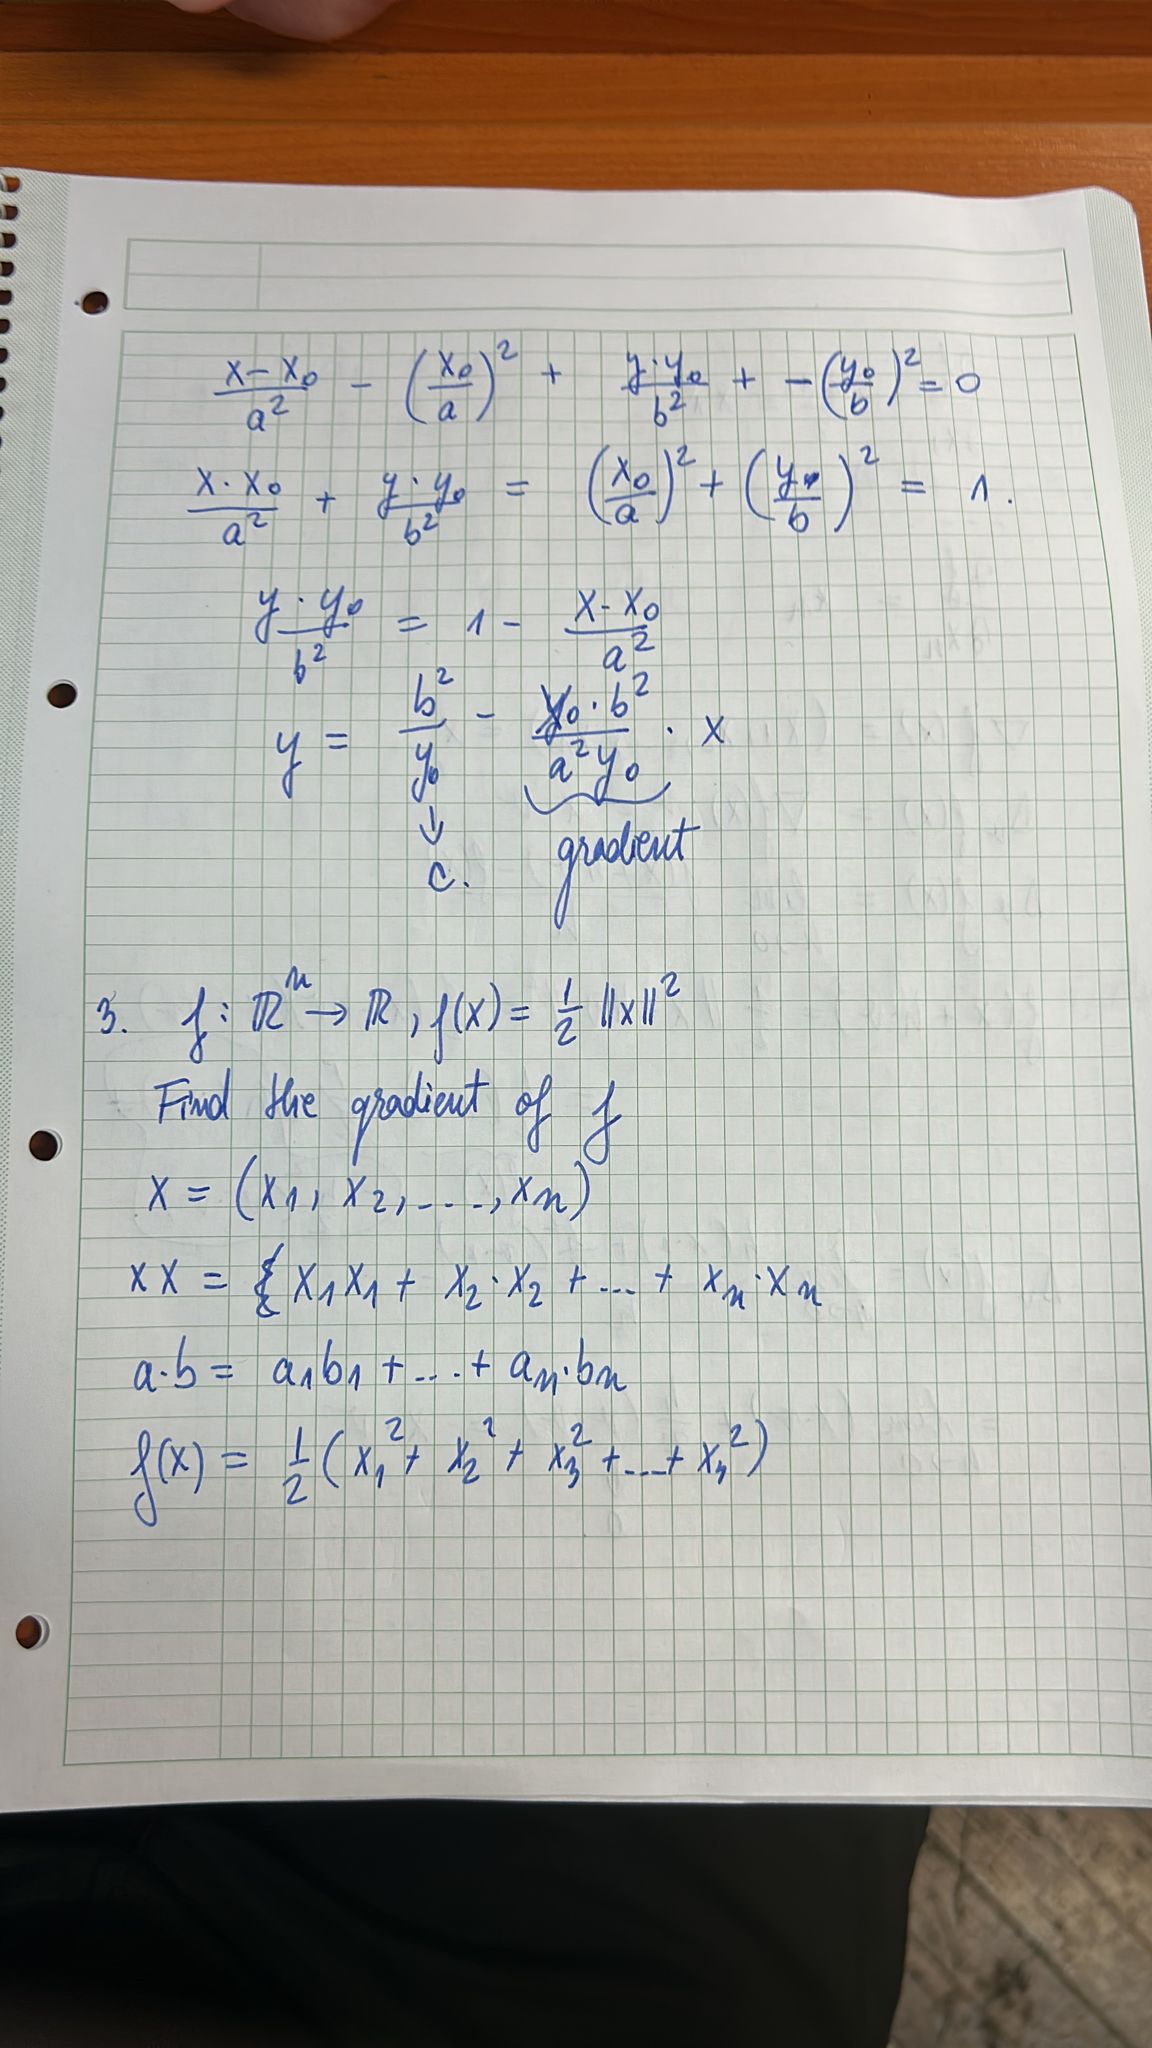 x - x₀/a² - (x₀/a)² + y·y₀/b² + -(y₀/b)² = 0
x·x₀/a² + y·y₀/b² = (x₀/a)² + (y₀/b)² = 1.
y·y₀/b² = 1 - x-x₀/a²
y = b²/y₀ - x₀·b²/a²y₀ · x
↓
c. gradient
3. f: ℝⁿ → ℝ, f(x) = 1/2 ||x||²
Find the gradient of f
x = (x₁, x₂, ...., xₙ)
x x = { x₁x₁ + x₂·x₂ + ... + xₙ·xₙ
a·b = a₁b₁ + ... + aₙ·bₙ
f(x) = 1/2 (x₁² + x₂² + x₃² + ... + xₙ²)